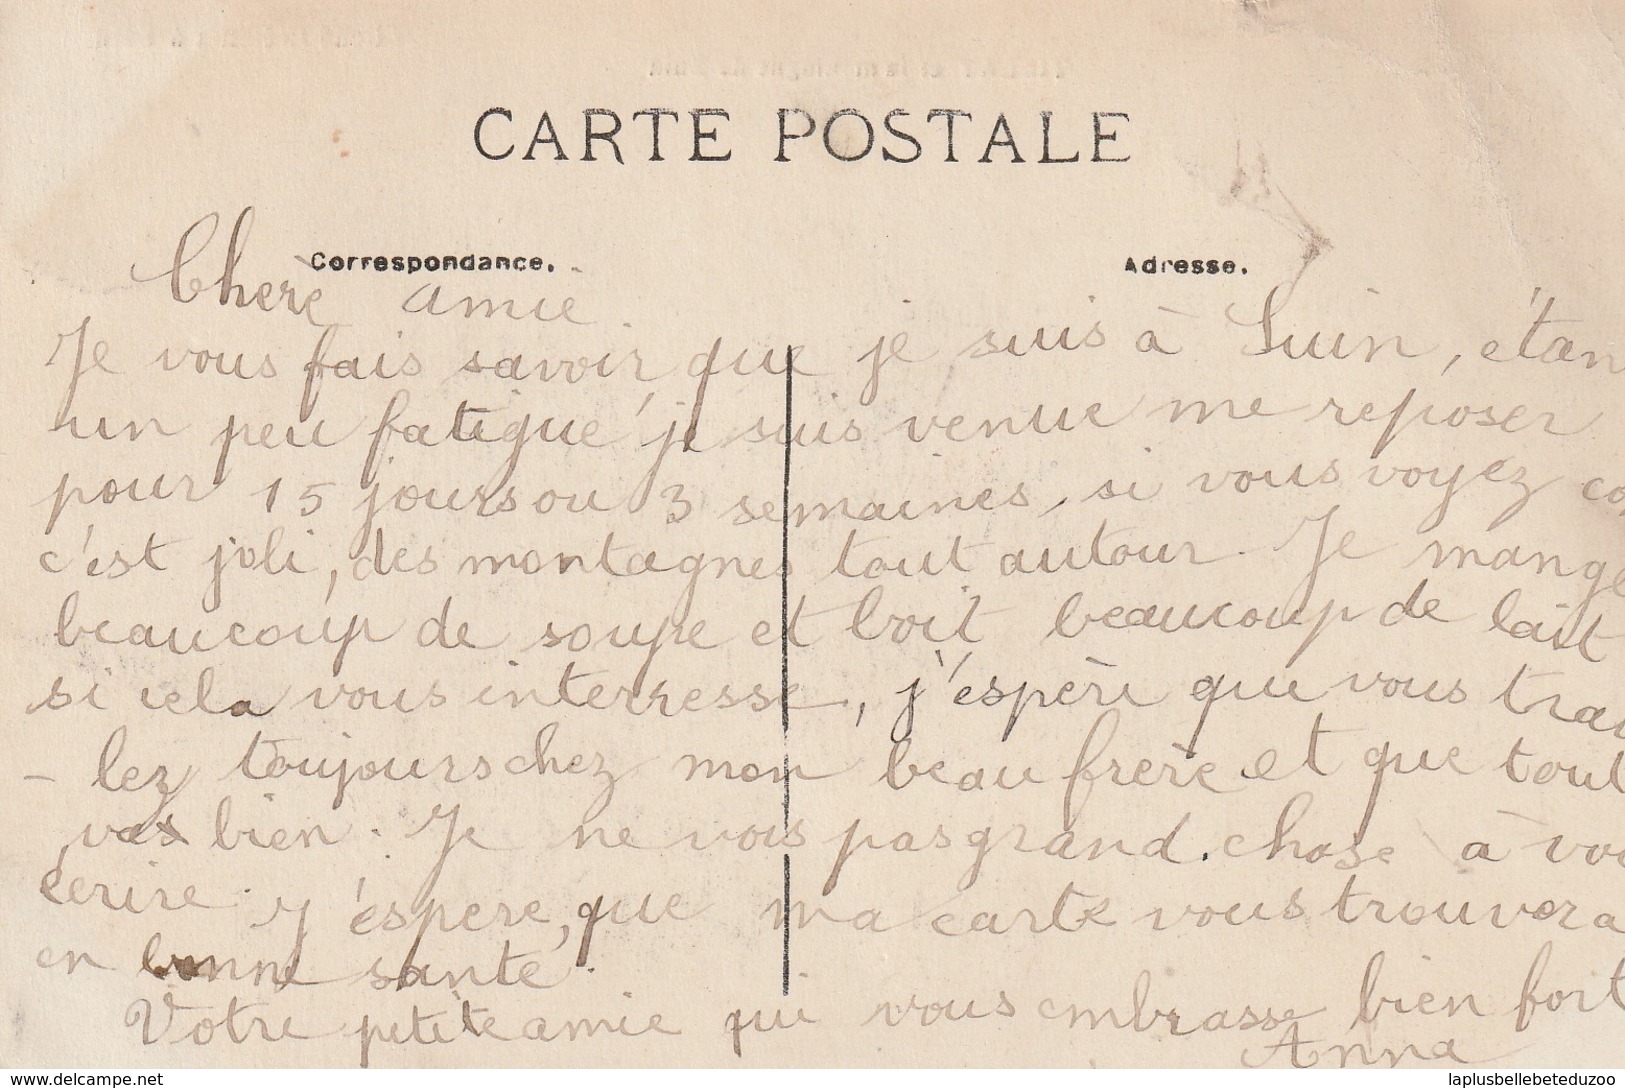 CARTE POSTALE
Correspondance.
Adresse.
Chere amie.
Je vous fais savoir que je suis à Suin, étan
un peu fatigue je suis venue me reposer
pour 15 jours ou 3 semaines, si vous voyez co
c'est joli, des montagnes tout autour. Je mange
beaucoup de soupe et boit beaucoup de lait
si cela vous interresse, j'espère que vous trav
- lez toujours chez mon beau frère et que tout
vas bien. Je ne vois pas grand. chose à vou
écrire. J'éspere, que ma carte vous trouvera
en bonne santé.
Votre petite amie qui vous embrasse bien fort
Anna
delcampe.net
laplusbellebeteduzoo